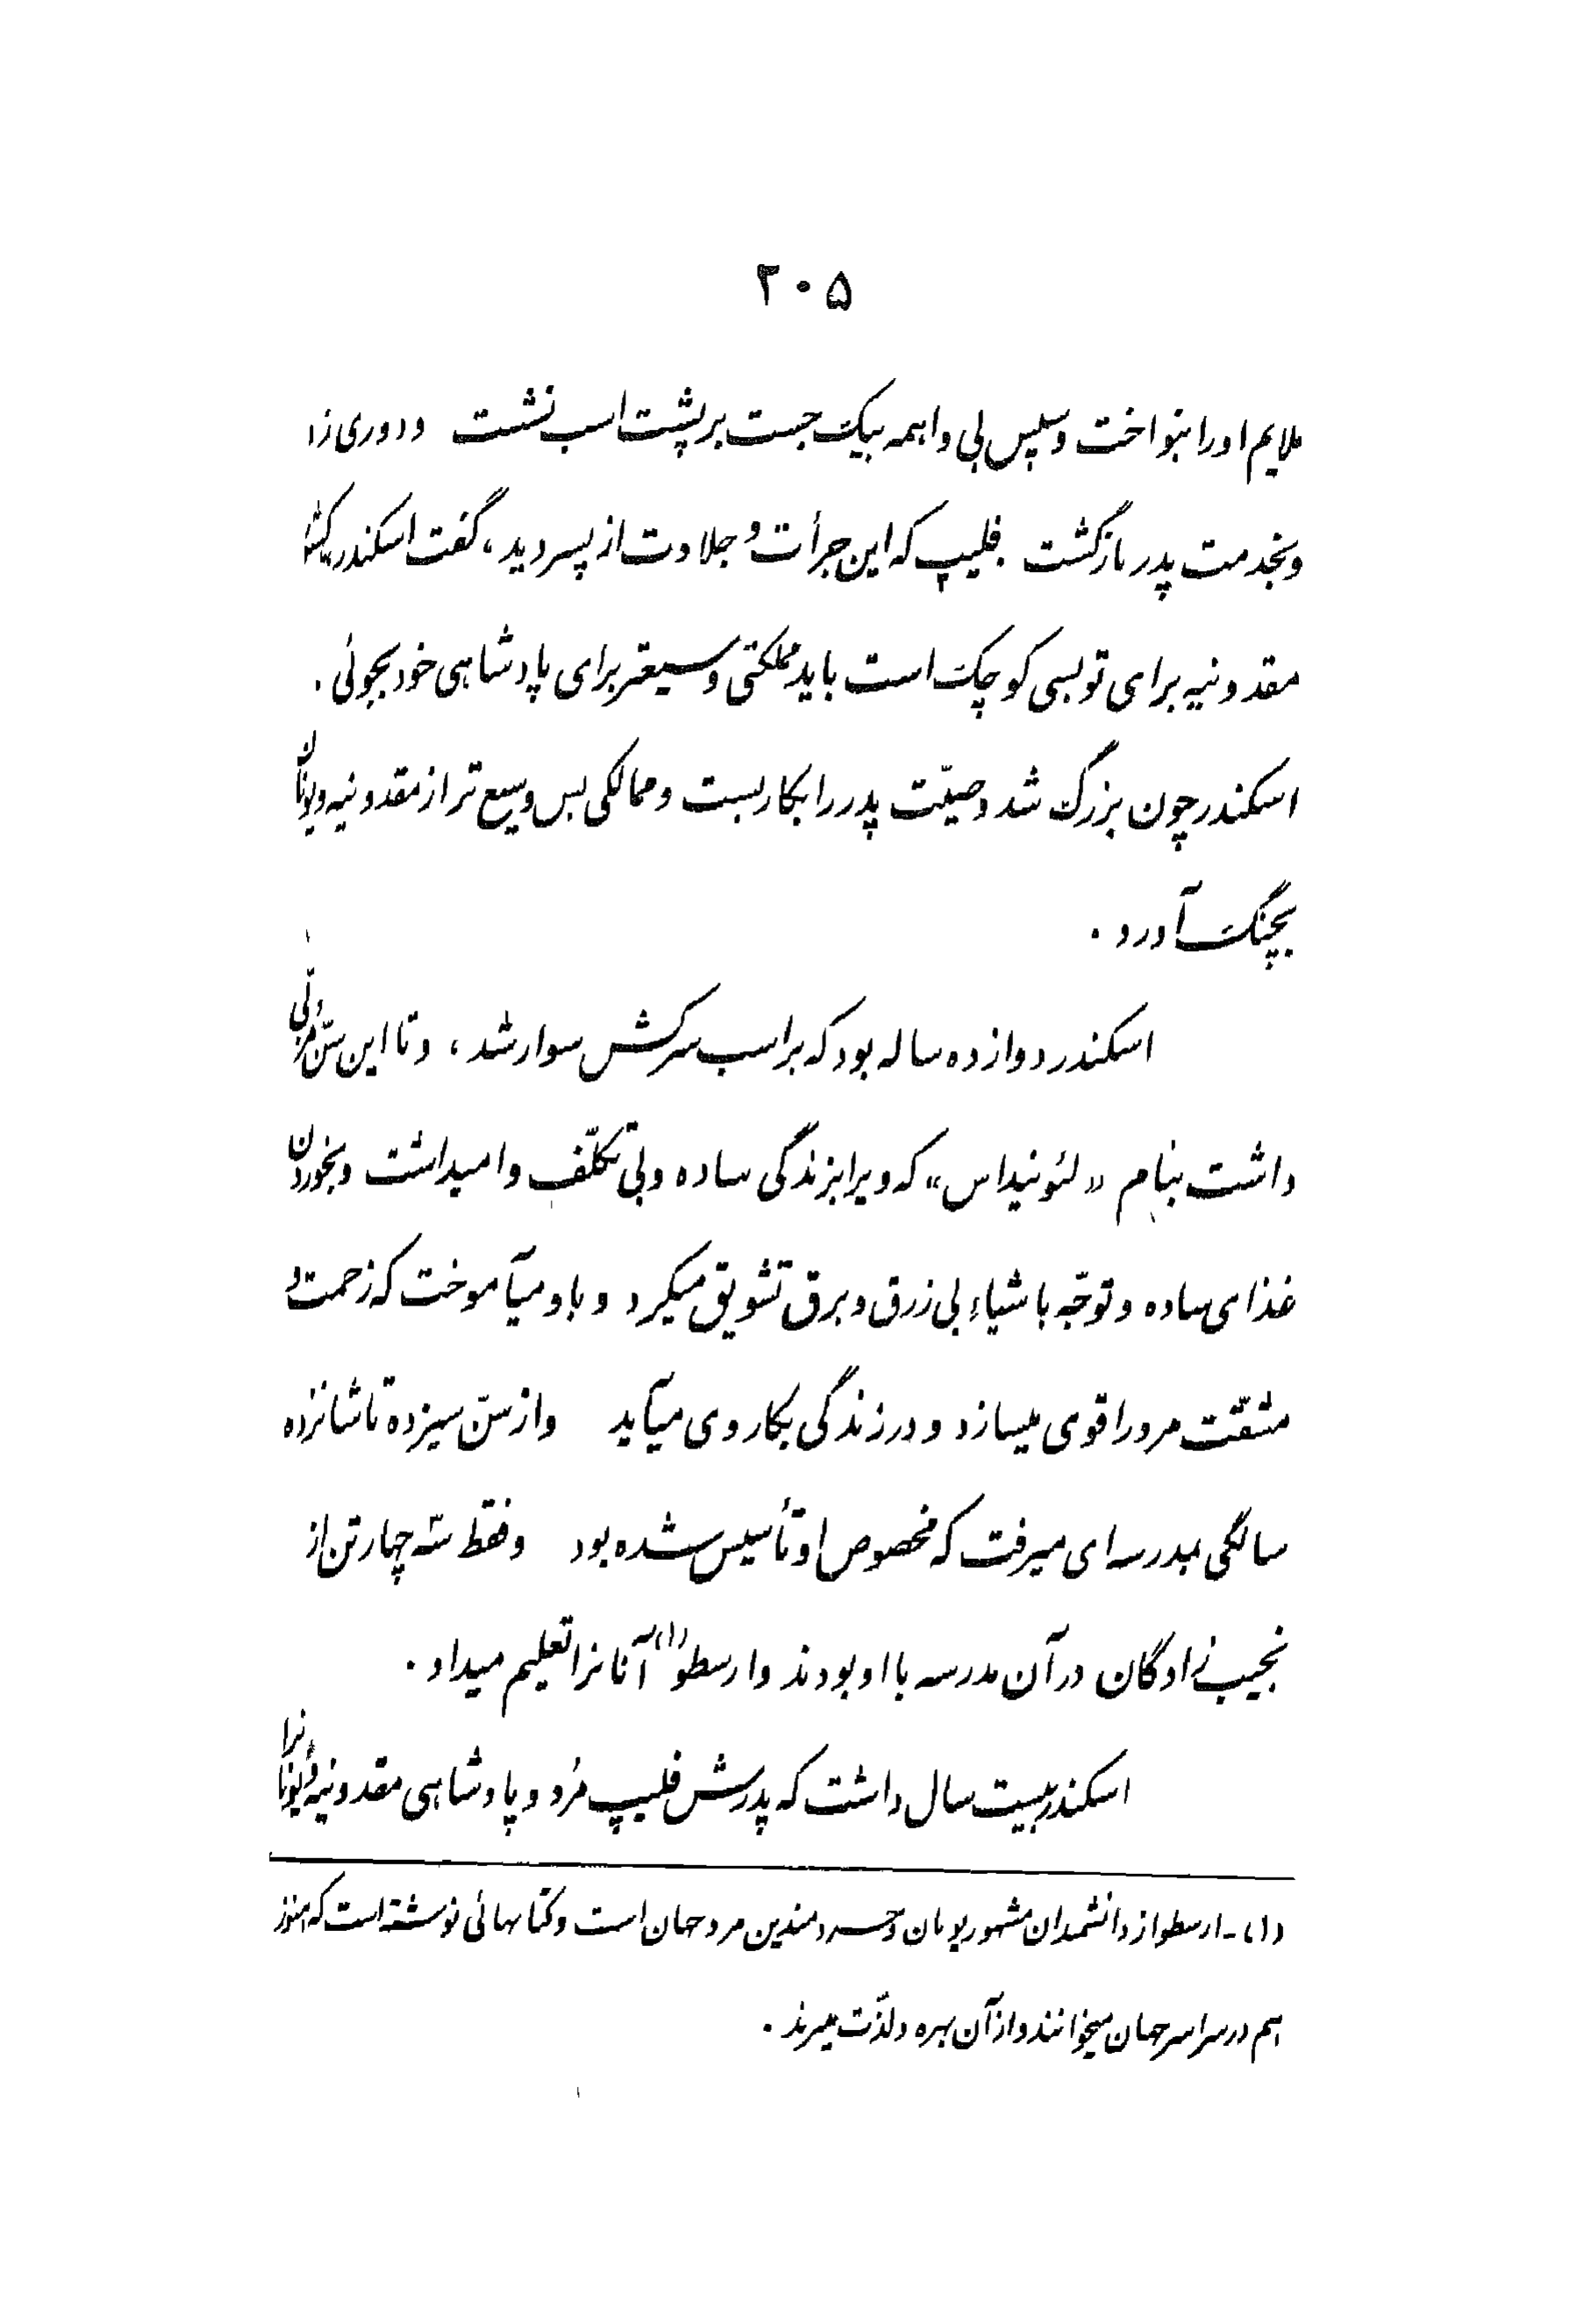 ۲۰۵
ملایم او را بنواخت و سپس بی واهمه بیک جست بر پشت اسب نشست و دوری زد
و بخدمت پدر بازگشت . فلیپ که این جرأت و جلادت از پسر دید ، گفت اسکندر
مقدونیه برای تو بسی کوچک است باید مملکتی وسیعتر برای پادشاهی خود بجوئی .
اسکندر چون بزرگ شد وصیّت پدر را بکار بست و ممالکی بس وسیع تر از مقدونیه و یونان
بچنگ آورد .
اسکندر دوازده ساله بود که بر اسب سرکش سوار شد ، و تا این سنّ مربّی
داشت بنام «لئونیداس» که ویرا بزندگی ساده و بی تکلّف وامیداشت و بخوردن
غذای ساده و توجّه باشیاء بی زرق و برق تشویق میکرد و باو میآموخت که زحمت و
مشقّت مرد را قوی میسازد و در زندگی بکار وی میآید و از سنّ سیزده تا شانزده
سالگی بمدرسه ای میرفت که مخصوص او تأسیس شده بود و فقط سه چهار تن از
نجیب زادگان در آن مدرسه با او بودند و ارسطو (۱) آنانرا تعلیم میداد .
اسکندر بیست سال داشت که پدرش فلیپ مُرد و پادشاهی مقدونیه و یونانرا
(۱) - ارسطو از دانشمندان مشهور یونان و خردمندترین مرد جهان است و کتابهائی نوشته است که هنوز
هم در سراسر جهان میخوانند و از آن بهره و لذّت میبرند .